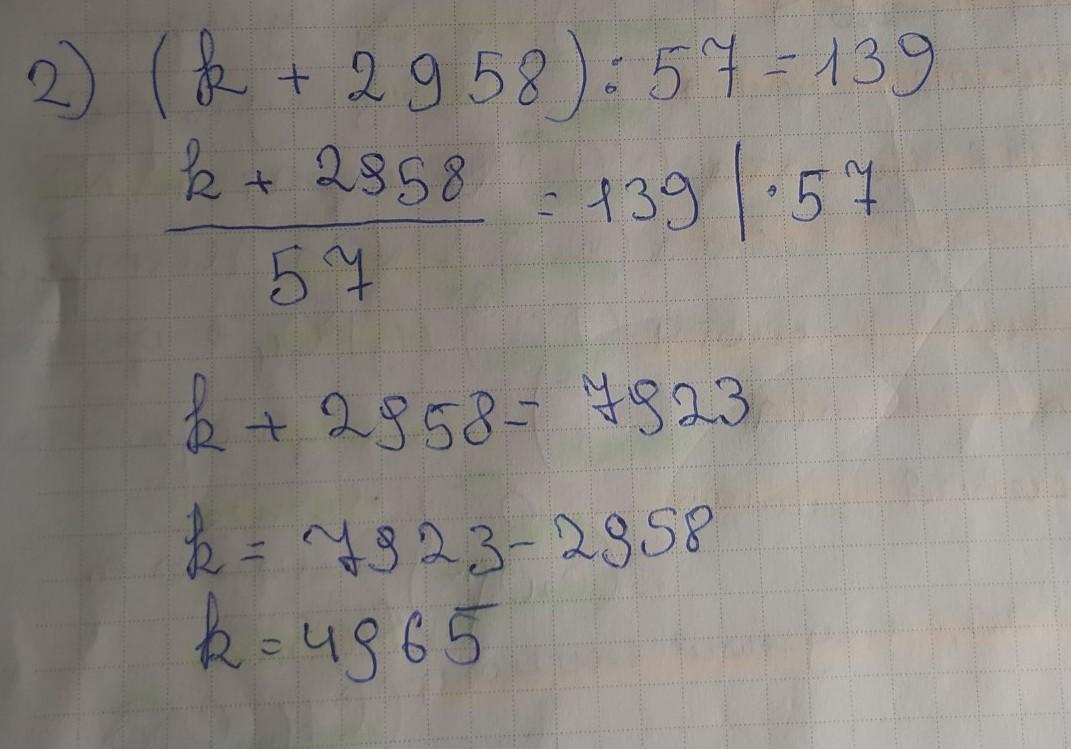 2) (k + 2958) : 57 = 139
k + 2958
57
= 139 | · 57
k + 2958 = 7923
k = 7923 - 2958
k = 4965